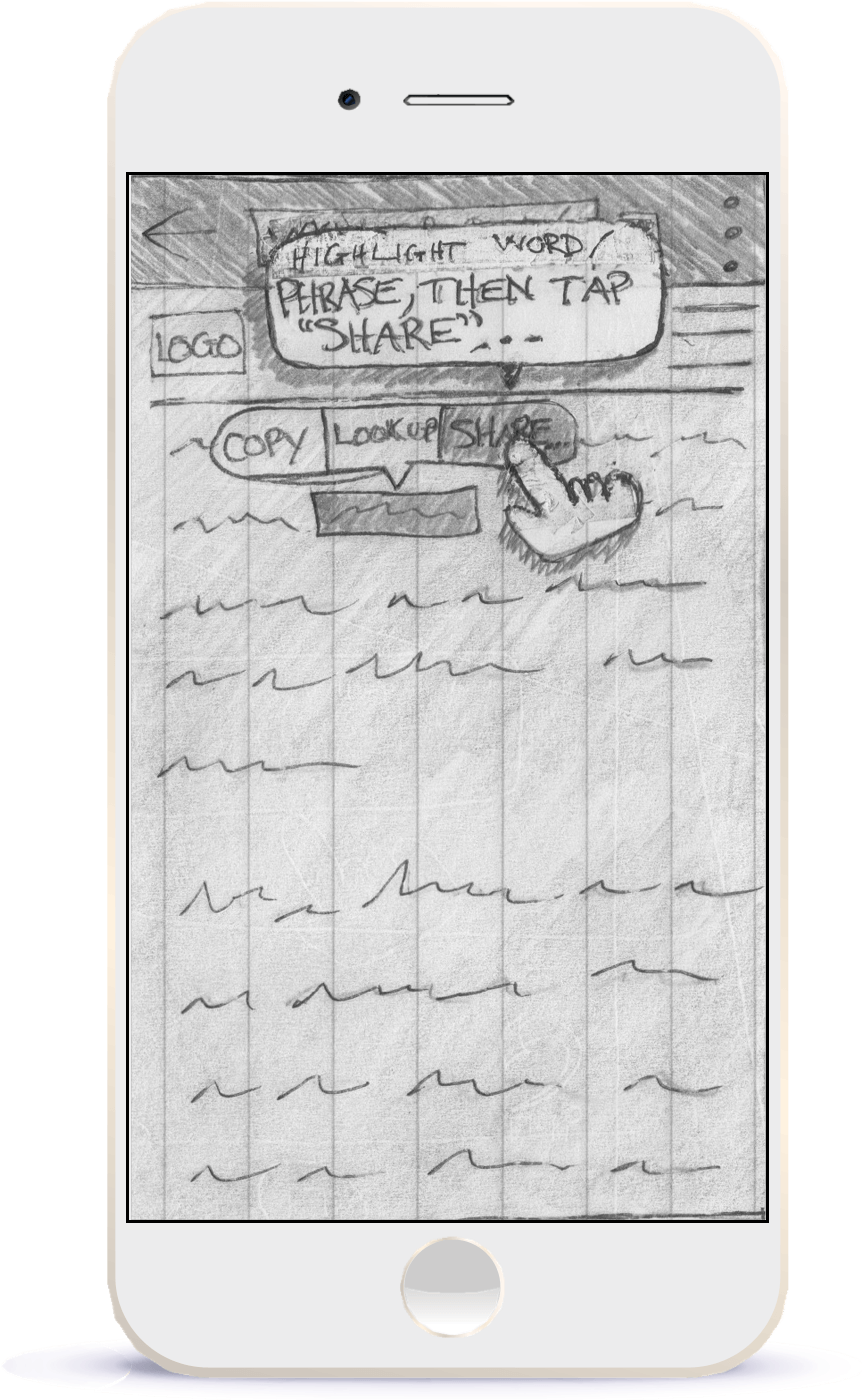 HIGHLIGHT WORD/
PHRASE, THEN TAP
"SHARE"...
LOGO
COPY LOOKUP SHARE...